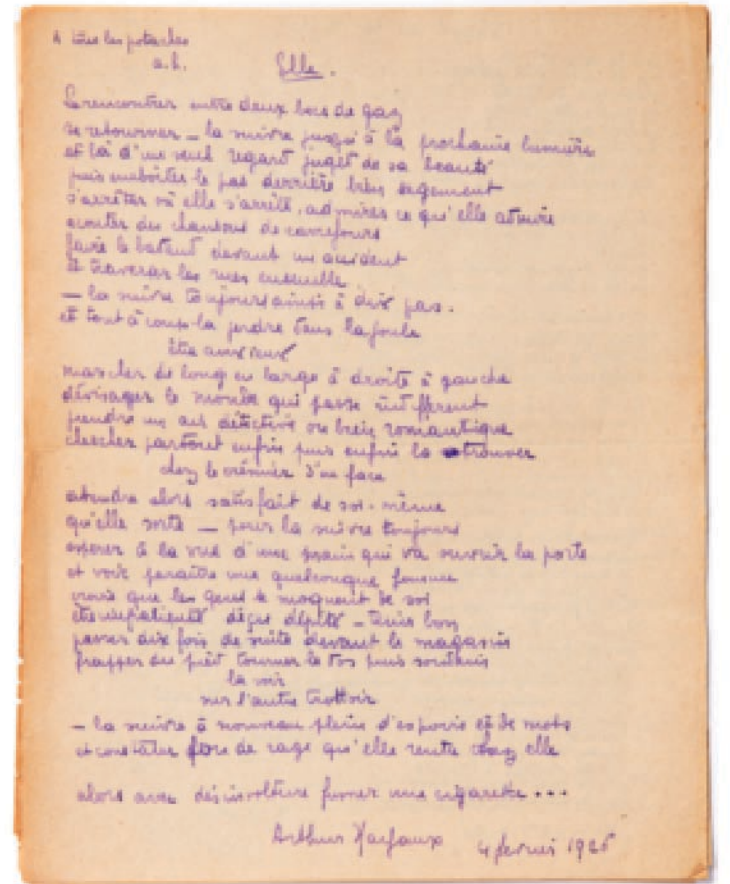 A tous les potaches
a.h.
Elle.
La rencontrer entre deux becs de gaz
se retourner – la suivre jusqu'à la prochaine lumière
et là d'un seul regard juger de sa beauté
puis emboîter le pas derrière bien sagement
s'arrêter où elle s'arrête, admirer ce qu'elle admire
écouter des chansons de carrefours
faire le badaud devant un accident
et traverser les rues ensemble
– la suivre toujours ainsi à dix pas.
et tout à coup la perdre dans la foule
être anxieux
marcher de long en large à droite à gauche
dévisager le monde qui passe indifférent
prendre un air détective ou bien romantique
chercher partout enfin puis enfin la retrouver
chez le crémier d'en face
attendre alors satisfait de soi-même
qu'elle sorte – pour la suivre toujours
espérer à la vue d'une main qui va ouvrir la porte
et voir paraître une quelconque femme
croire que les gens se moquent de soi
être impatienté déçu dépité – tenir bon
passer dix fois de suite devant le magasin
frapper du pied tourner le dos puis soudain
la voir
sur l'autre trottoir
– la suivre à nouveau plein d'espoir et de mots
et constater fou de rage qu'elle rentre chez elle
alors avec désinvolture fumer une cigarette...
Arthur Harfaux 4 février 1926